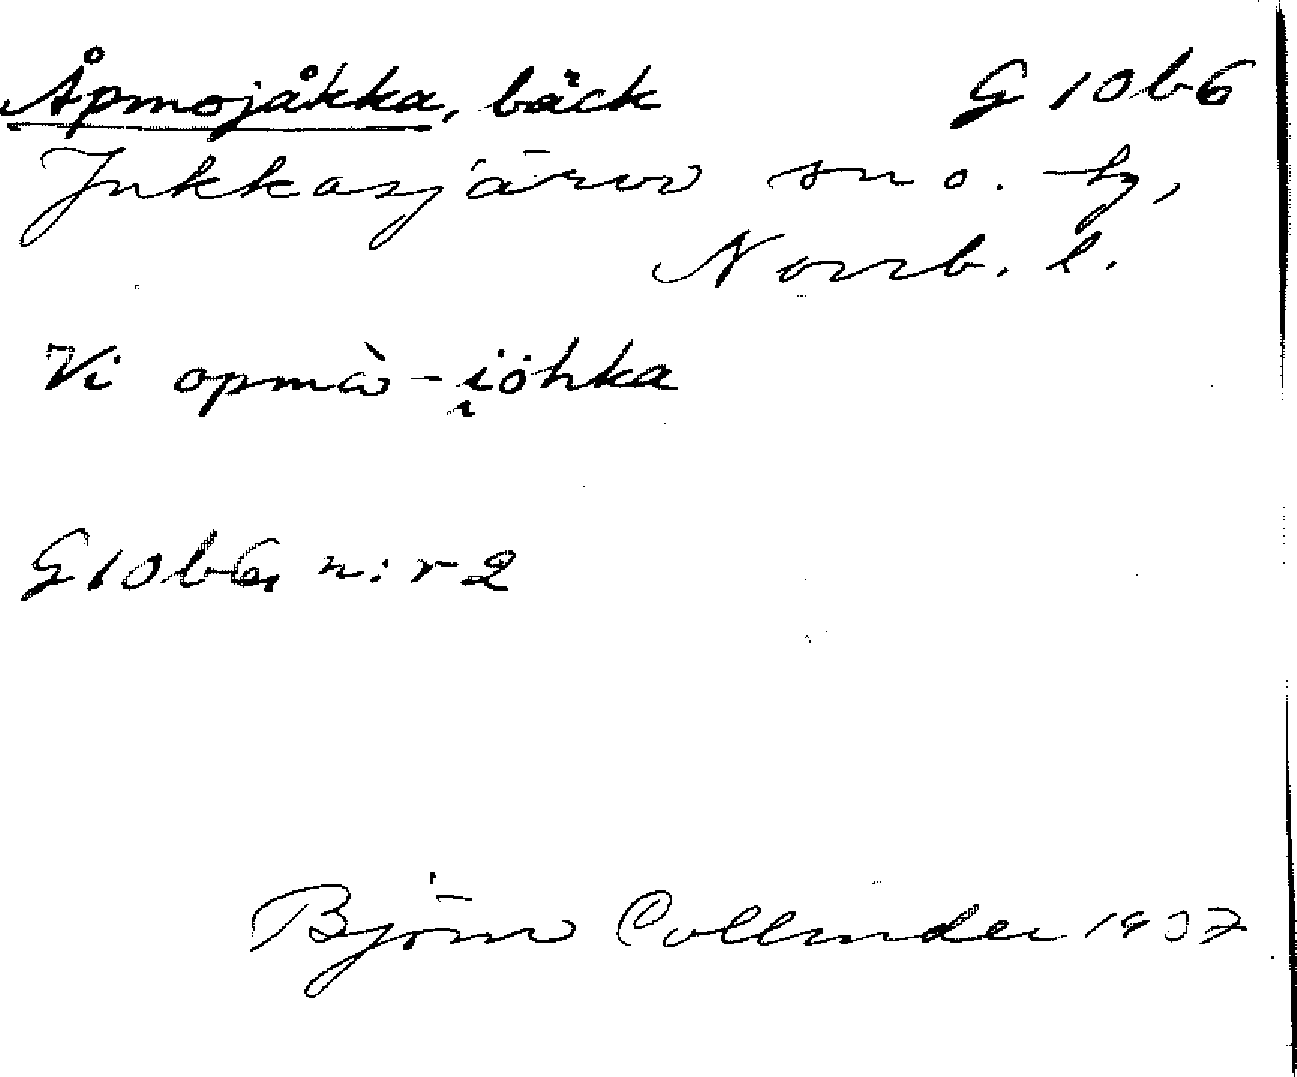 Åpmojåkka, bäck G 10 b 6
Jukkasjärvi sn o. tg,
Norrb. l.
Vi opmà-i̯ȯhka
G 10 b 6, n:r 2
Björn Collinder 1937